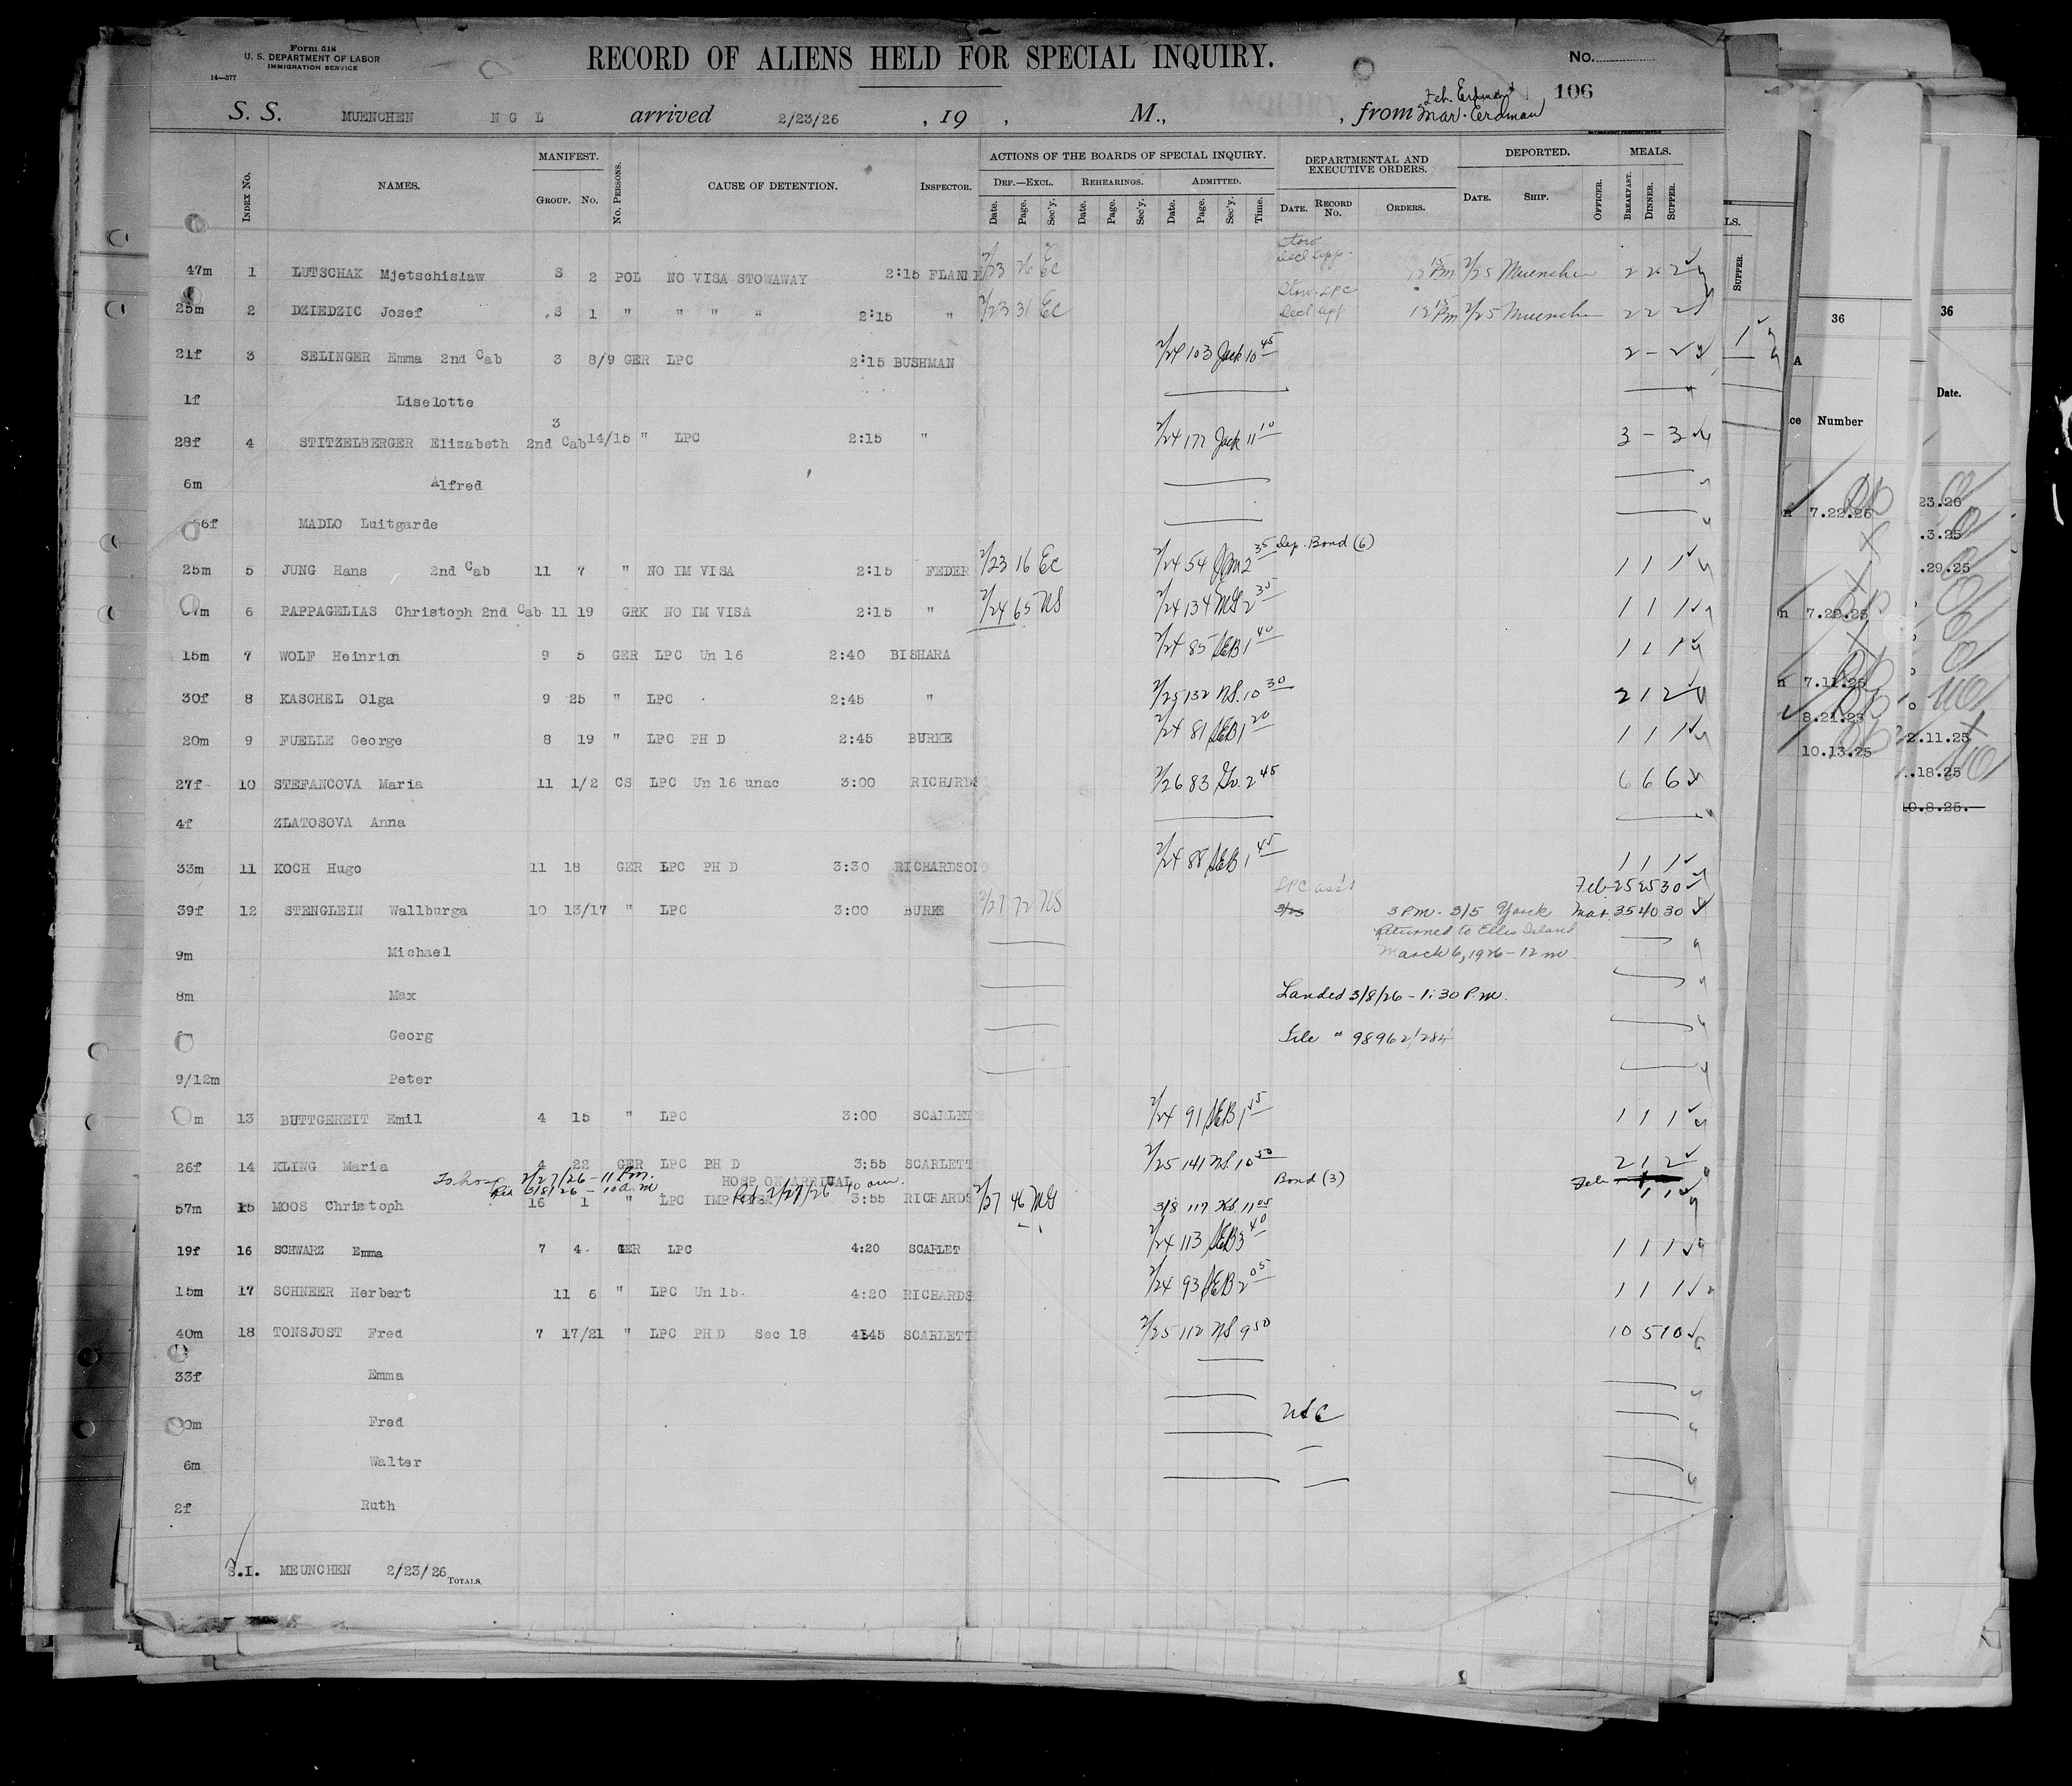 Form 518
U. S. DEPARTMENT OF LABOR
IMMIGRATION SERVICE
14—377
RECORD OF ALIENS HELD FOR SPECIAL INQUIRY.
No.
106
S. S. MUENCHEN N G L arrived 2/23/26 , 19 , M., , from Feb. Erdman
Mar. Erdman
INDEX No. NAMES. MANIFEST. GROUP. No. No. PERSONS. CAUSE OF DETENTION. INSPECTOR. ACTIONS OF THE BOARDS OF SPECIAL INQUIRY. DEPARTMENTAL AND EXECUTIVE ORDERS. DEPORTED. MEALS.
DEF.—EXCL. REHEARINGS. ADMITTED.
Date. Page. Sec'y. Date. Page. Sec'y. Date. Page. Sec'y. Time. DATE. RECORD No. ORDERS. DATE. SHIP. OFFICER. BREAKFAST. DINNER. SUPPER.
Stow
Decl app.
47m 1 LUTSCHAK Mjetschislaw S 2 POL NO VISA STOWAWAY 2:15 FLANN 2/23 26 EC 12 15 Pm 2/25 Muenchen 2 2 2
Stow. LPC
Decl app
25m 2 DZIEDZIC Josef S 1 " " " " 2:15 " 2/23 31 EC 12 15 Pm 2/25 Muenchen 2 2 2
21f 3 SELINGER Emma 2nd Cab 3 8/9 GER LPC 2:15 BUSHMAN 2/24 103 Jack 10 45 2 - 2
1f Liselotte
28f 4 STITZELBERGER Elizabeth 2nd Cab 3 14/15 " LPC 2:15 " 2/24 177 Jack 11 10 3 - 3
6m Alfred
66f MADLO Luitgarde
25m 5 JUNG Hans 2nd Cab 11 7 " NO IM VISA 2:15 FEDER 2/23 16 EC 2/24 54 2 35 Dep. Bond (6) 1 1 1
7m 6 PAPPAGELIAS Christoph 2nd Cab 11 19 GRK NO IM VISA 2:15 " 2/24 65 NS 2/24 134 2 35 1 1 1
15m 7 WOLF Heinrich 9 5 GER LPC Un 16 2:40 BISHARA 2/24 85 SEB 1 40 1 1 1
30f 8 KASCHEL Olga 9 25 " LPC 2:45 " 2/25 132 NS. 10 30 2 1 2
20m 9 FUELLE George 8 19 " LPC PH D 2:45 BURKE 2/24 81 SEB 1 20 1 1 1
27f 10 STEFANCOVA Maria 11 1/2 CS LPC Un 16 unac 3:00 RICHARDS 2/26 83 2 45 6 6 6
4f ZLATOSOVA Anna
33m 11 KOCH Hugo 11 18 GER LPC PH D 3:30 RICHARDSON 2/24 88 SEB 1 45 1 1 1
LPC Feb 25 25 30
39f 12 STENGLEIN Wallburga 10 13/17 " LPC 3:00 BURKE 2/27 72 NS 3 P.M. - 3/5 Yorck Mar. 35 40 30
Returned to Ellis Island
9m Michael March 6, 1926 - 12 m.
8m Max Landed 3/8/26 - 1:30 P.m.
6m Georg File # 98962/284
9/12m Peter
m 13 BUTTGEREIT Emil 4 15 " LPC 3:00 SCARLET 2/24 91 SEB 1 55 1 1 1
26f 14 KLING Maria 4 22 GER LPC PH D 3:55 SCARLETT 2/25 141 NS. 10 50 2 1 2
To hosp 2/27/26 - 11 P.m. HOSP ON ARRIVAL Bond (3) Feb
Red 3/8/26 - 10 a.m
57m 15 MOOS Christoph 16 1 " LPC 3:55 RICHARDS 2/27 46 3/8 117 11 05 1 1
19f 16 SCHWARZ Emma 7 4 GER LPC 4:20 SCARLET 2/24 113 SEB 3 40 1 1 1
15m 17 SCHNEER Herbert 11 6 " LPC Un 15. 4:20 RICHARDS 2/24 93 SEB 2 05 1 1 1
40m 18 TONSJOST Fred 7 17/21 " LPC PH D Sec 18 4:45 SCARLETT 2/25 112 NS 9 50 10 5 10
33f Emma
m Fred USC
6m Walter
2f Ruth
S.I. MEUNCHEN 2/23/26 TOTALS.
LS.
SUPPER.
36
A
ce Number
n 7.22.25
n 7.22.25
n 7.11.25
8.21.25
10.13.25
36
Date.
23.26
.3.25
.29.25
2.11.25
.18.25
10.8.25.